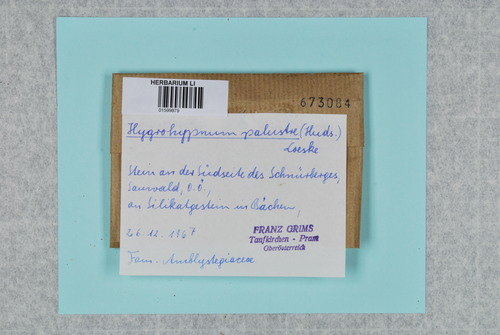 HERBARIUM LI
01599879
673084
Hygrohypnum palustre (Huds.)
Loeske
Stein an der Südseite des Schnürberges,
Sauwald, O.Ö.,
an Silikatgestein in Bächen,
26.12.1967
FRANZ GRIMS
Taufkirchen - Pram
Oberösterreich
Fam. Amblystegiaceae